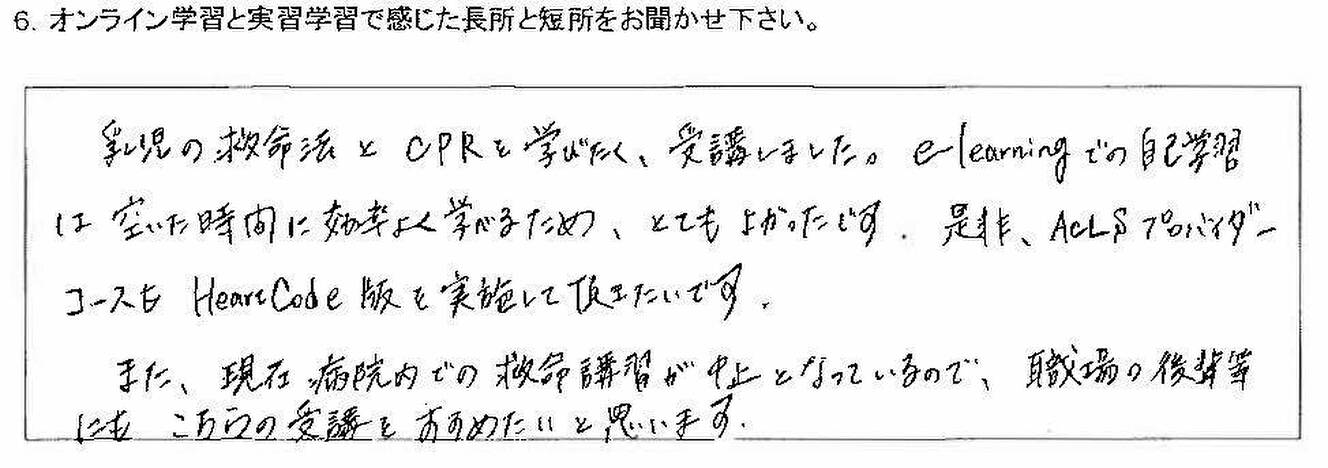 6. オンライン学習と実習学習で感じた長所と短所をお聞かせ下さい。
乳児の救命法と CPRを学びたく、受講しました。e-learningでの自己学習
は空いた時間に効率よく学べるため、とてもよかったです。是非、ACLSプロバイダー
コースも HeartCode 版を実施して頂きたいです。
また、現在病院内での救命講習が中止となっているので、職場の後輩等
にも こちらの受講をおすすめたいと思います。